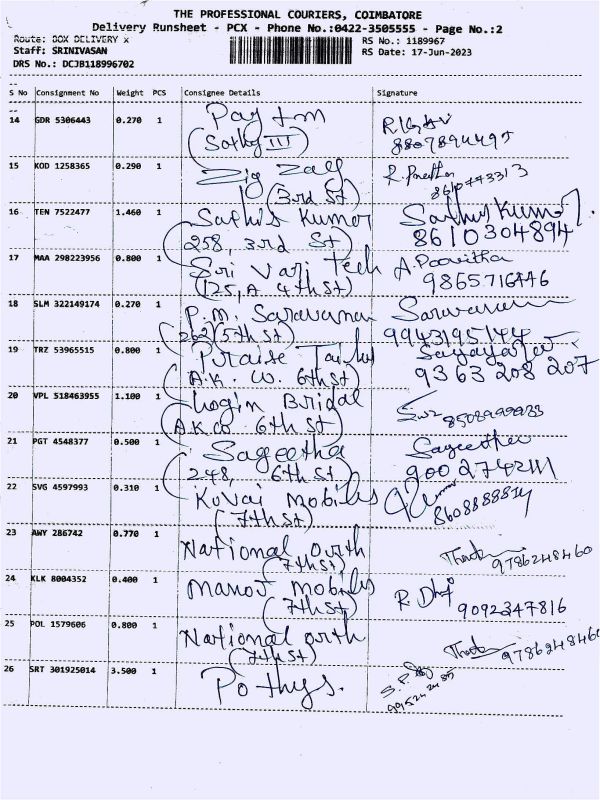 THE PROFESSIONAL COURIERS, COIMBATORE
Delivery Runsheet - PCX - Phone No.:0422-3505555 - Page No.:2
Route: BOX DELIVERY x
RS No.: 1189967
Staff: SRINIVASAN
RS Date: 17-Jun-2023
DRS No.: DCJB118996702
S No Consignment No Weight PCS Consignee Details Signature
14 GDR 5306443 0.270 1 Paytm
(Sathy III)
8807894495
15 KOD 1258365 0.290 1 Zig Zag
(3rd St)
8610773313
16 TEN 7522477 1.460 1 Sathis Kumar Sathis Kumar
(258, 3rd St) 8610304894
17 MAA 298223956 0.800 1 Sri Vari Tech A. Pavitha
(125, A 4th St) 9865716446
18 SLM 322149174 0.270 1 P.M. Saravanan Saravanan
(262)(5th St) 9943195144
19 TRZ 53965515 0.800 1 Praise
(A.K. W. 6th St) 9363208207
20 VPL 518463955 1.100 1 Login Bridal
(A.K.W 6th St) 8508999933
21 PGT 4548377 0.500 1 Sageetha Sageetha
248, 6th St) 9002742111
22 SVG 4597993 0.310 1 Kovai Mobiles
(7th St) 8608888814
23 AWY 286742 0.770 1 National orth
(7th St) 9786248460
24 KLK 8004352 0.400 1 Manoj Mobiles
(7th St) 9092347816
25 POL 1579606 0.800 1 National orth
(7th St) 9786248460
26 SRT 301925014 3.500 1 Pothys.